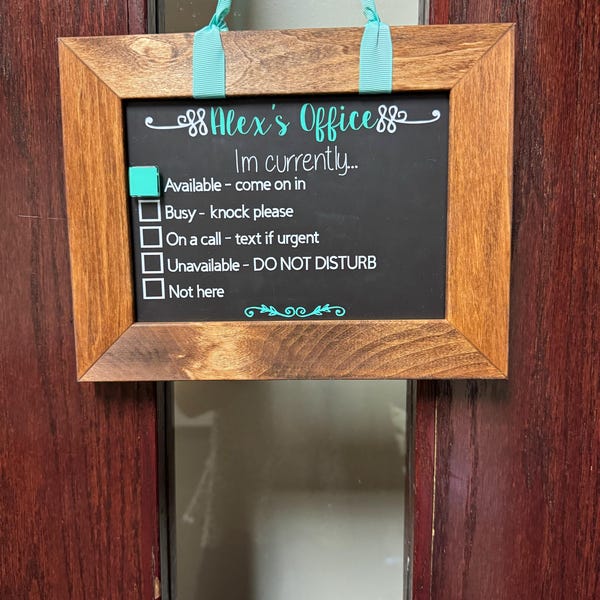 Alex's Office
Im currently...
Available - come on in
Busy - knock please
On a call - text if urgent
Unavailable - DO NOT DISTURB
Not here